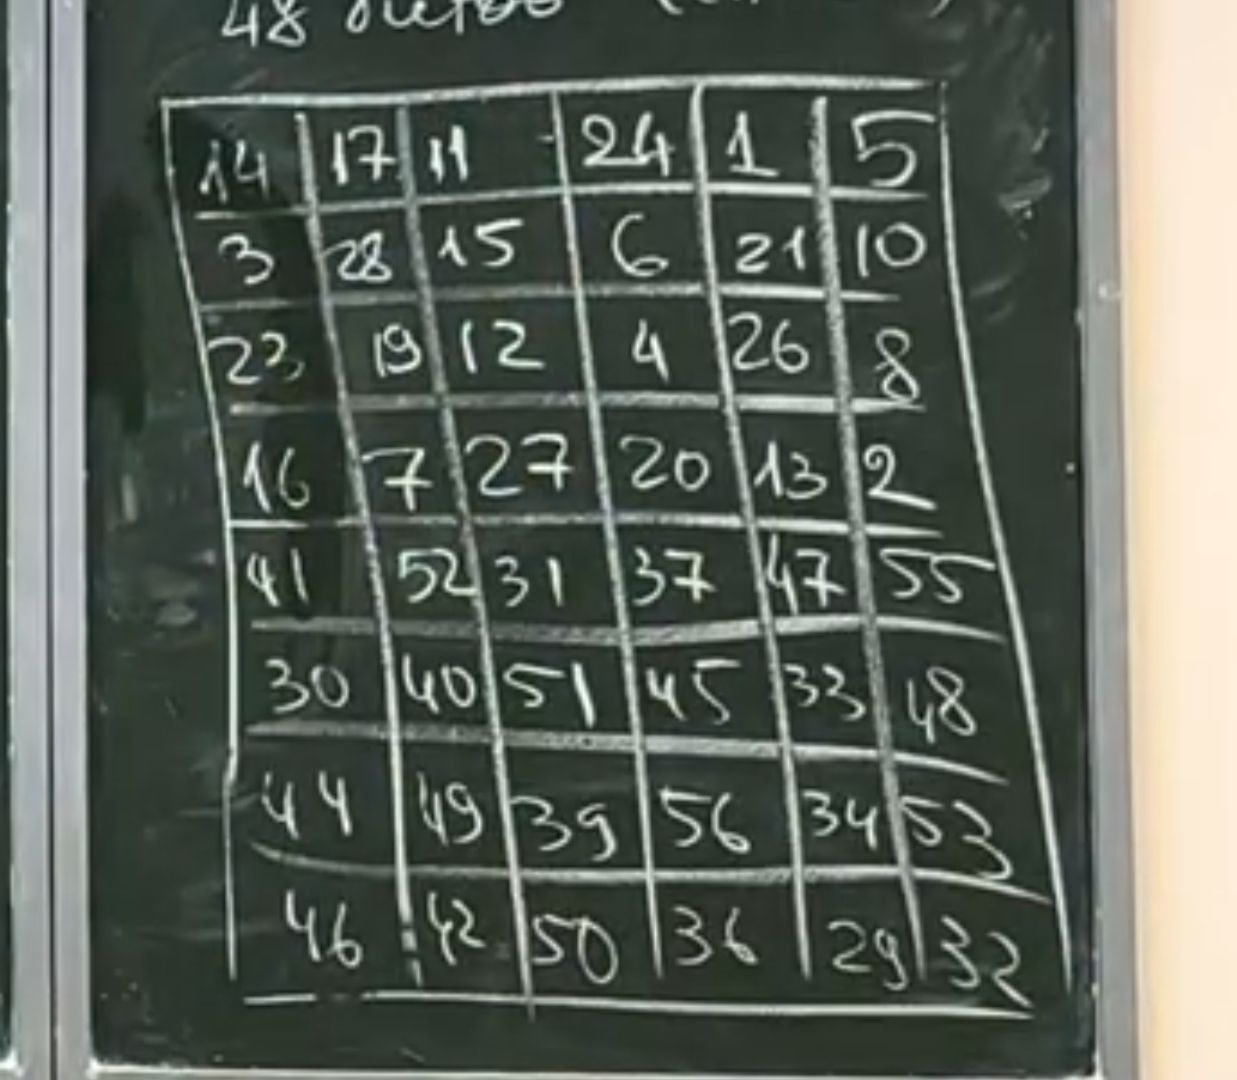 48 битов
14 17 11 24 1 5
3 28 15 6 21 10
23 19 12 4 26 8
16 7 27 20 13 2
41 52 31 37 47 55
30 40 51 45 33 48
44 49 39 56 34 53
46 42 50 36 29 32